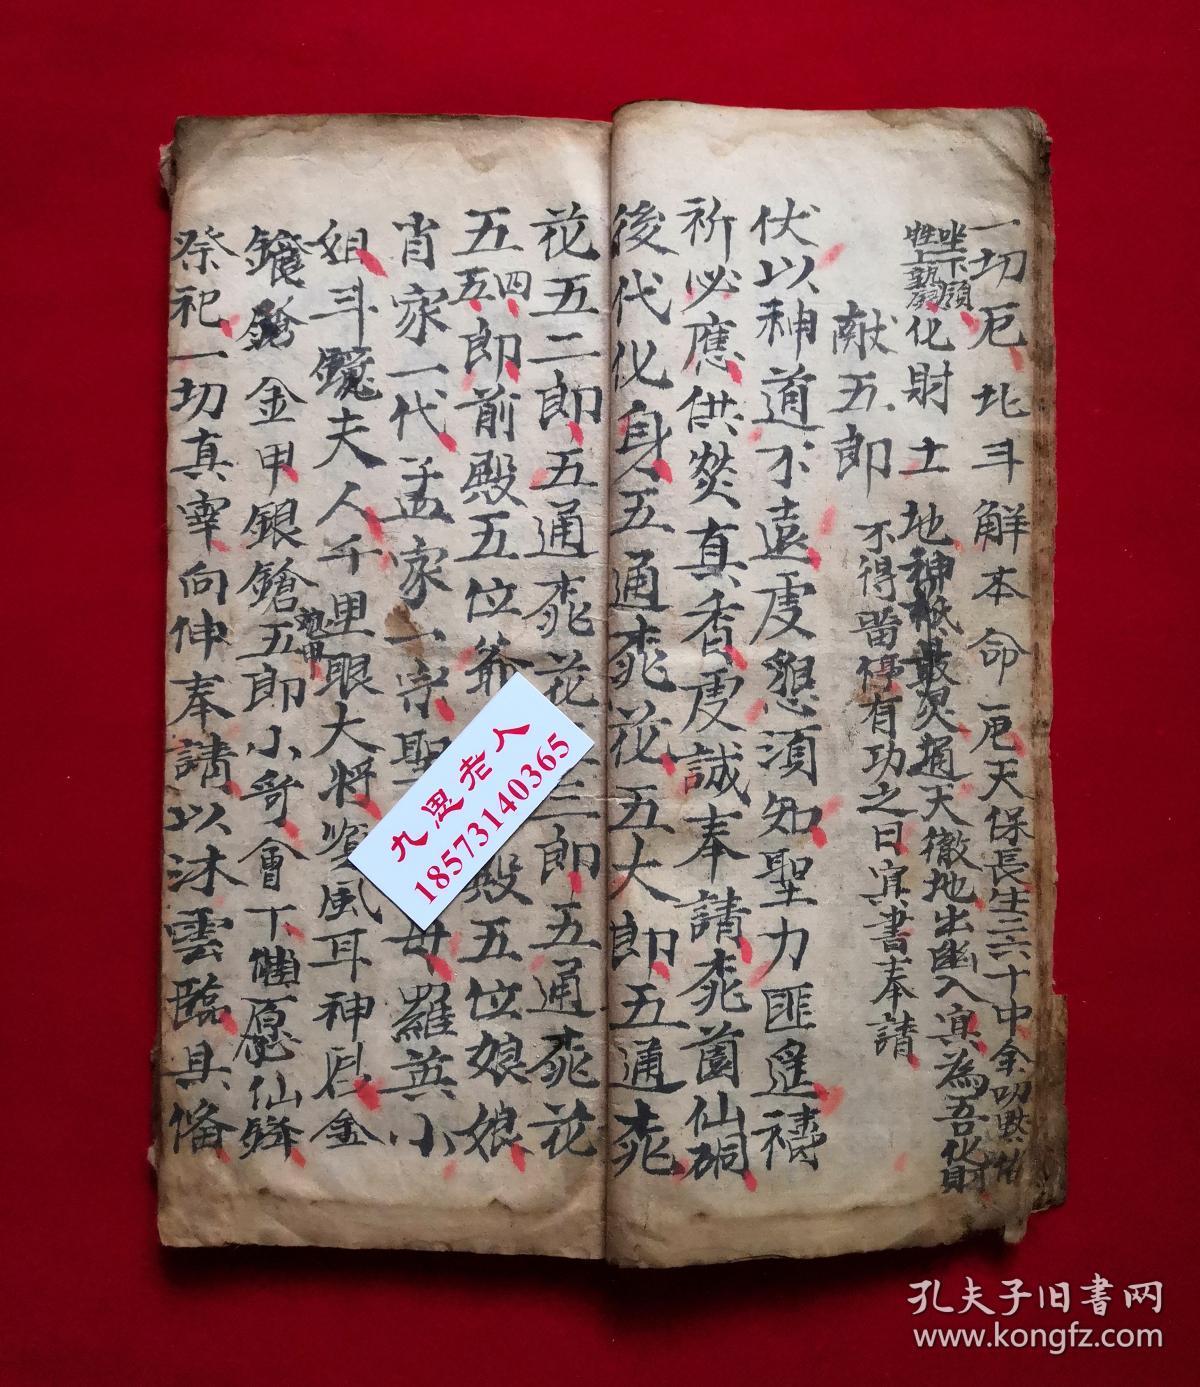 一切厄北斗解本命厄天保長生三六十中金
化財土地神祇最灵通天徹地出幽入冥為吾化財
献五郎
不得畄停有功之日寘書奉請
伏以神道不遠虔懇須知聖力匪遥禱
祈必應供焚真香虔誠奉請桃園仙硐
後代化身五通桃花五大郎五通桃
花五二郎五通桃花五三郎五通桃花
五四五五郎前殿五位爺 殿五位娘娘
肖家一代孟家一 聖 母羅英小
姐斗鏡夫人千里眼大将順風耳神眉金
鎗金甲銀鎗五郎小哥會下 愿仙
祭祀一切真宰向伸奉請以沐雲臨具俻
九思老人
18573140365
孔夫子旧書网
www.kongfz.com